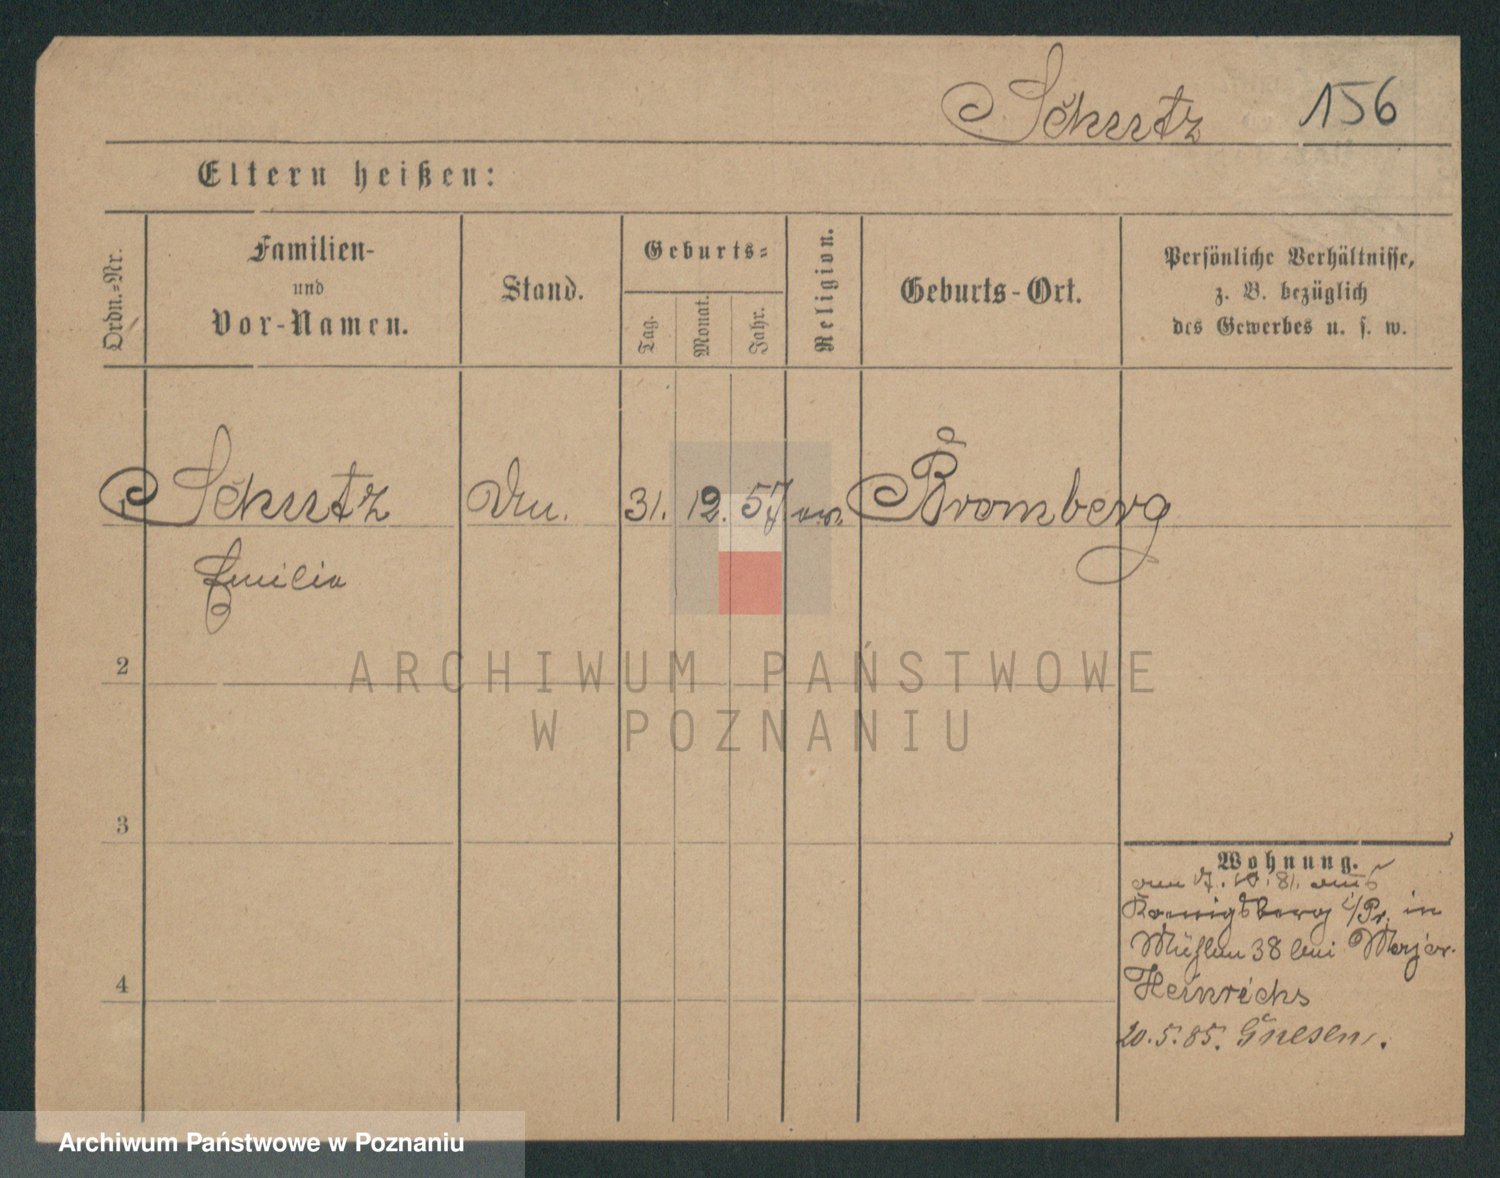 Schutz 156
Eltern heißen:
Ordn.-Nr.
Familien-
und
Vor-Namen.
Stand.
Geburts-
Tag.
Monat.
Jahr.
Religion.
Geburts-Ort.
Persönliche Verhältnisse,
z. B. bezüglich
des Gewerbes u. s. w.
1 Schutz 31. 12. 57 Bromberg
Emilie
2
3
4
Wohnung.
am 7. 10. 81. aus
Koenigsberg i/Pr. in
Mühlen 38 bei Major
Heinrichs
20. 5. 85. Gnesen.
ARCHIWUM PAŃSTWOWE
W POZNANIU
Archiwum Państwowe w Poznaniu